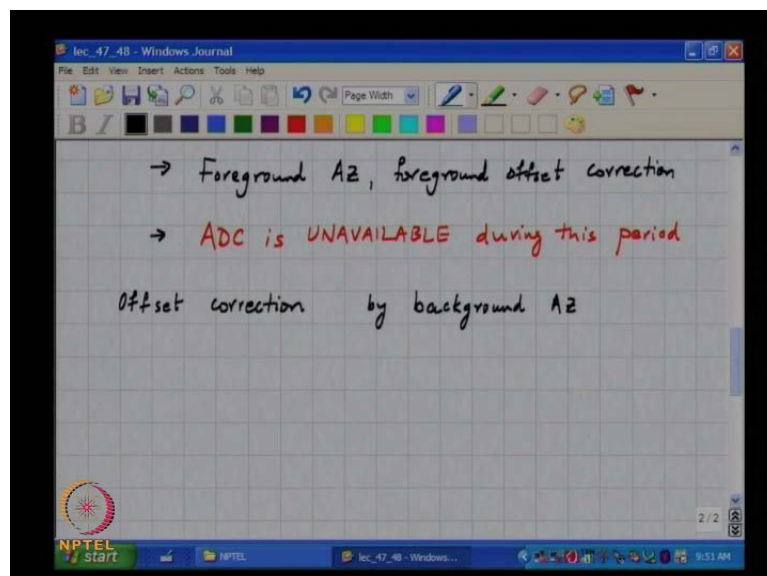 lec_47_48 - Windows Journal
File Edit View Insert Actions Tools Help
Page Width
B I
→ Foreground AZ, foreground offset correction
→ ADC is UNAVAILABLE during this period
Offset correction by background AZ
2/2
NPTEL
start NPTEL lec_47_48 - Windows... 9:51 AM